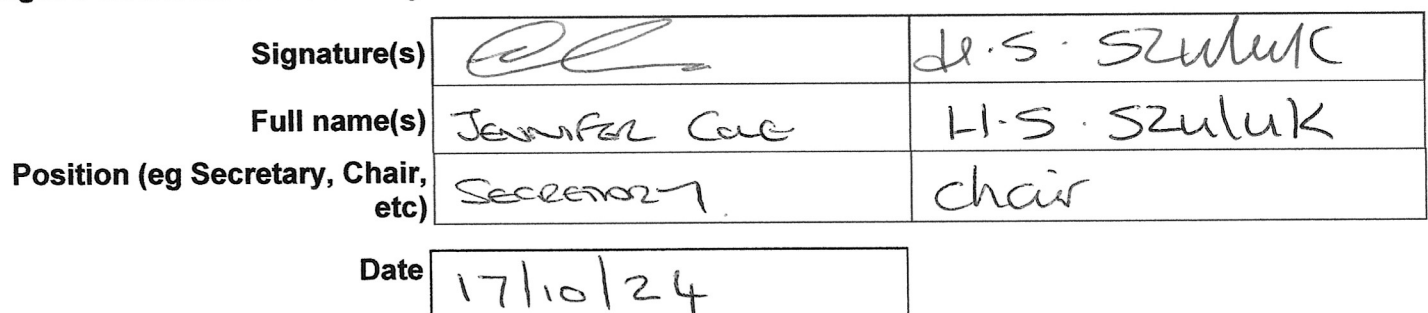 Signature(s) H.S. Szuluk
Full name(s) JENNIFER H.S. Szuluk
Position (eg Secretary, Chair, etc) SECRETARY chair
Date 17/10/24